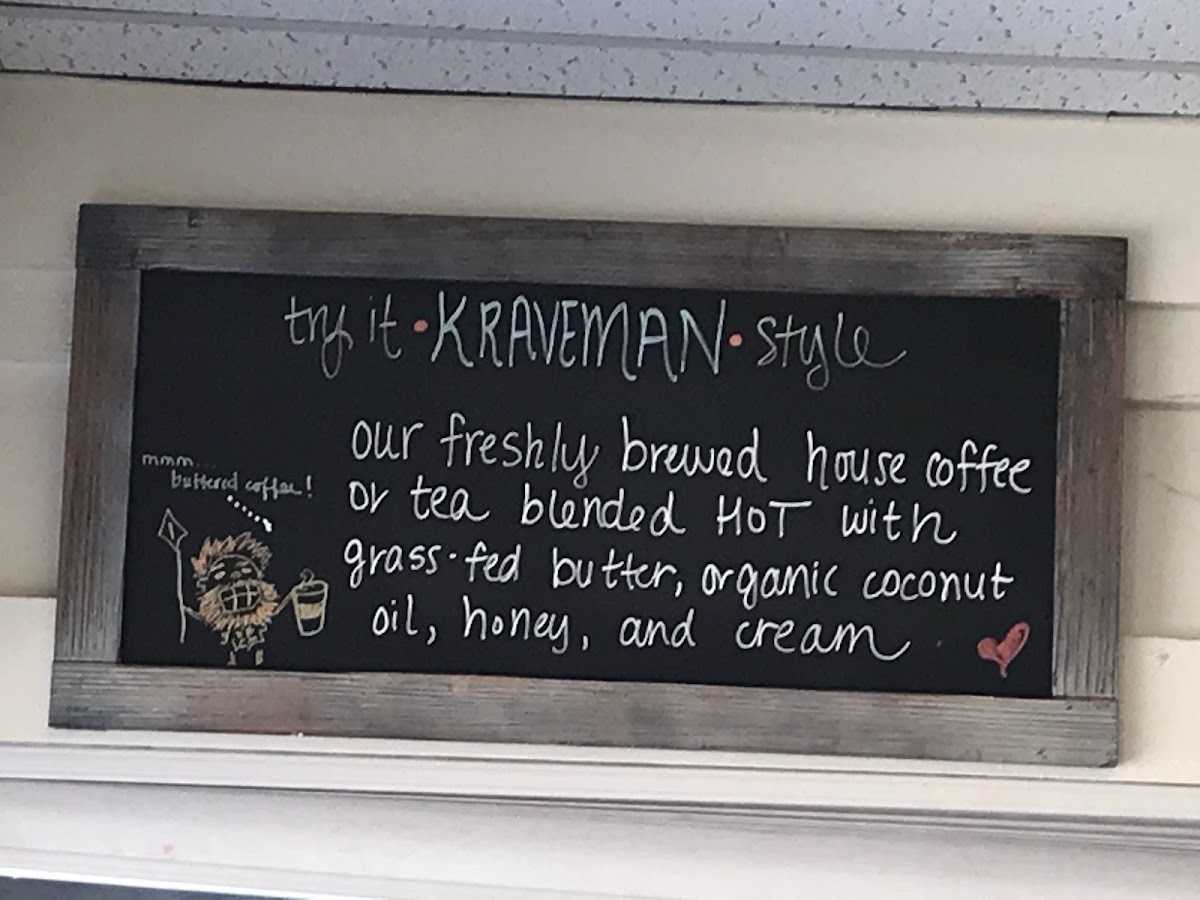 try it • KRAVEMAN • style
our freshly brewed house coffee
or tea blended HOT with
grass-fed butter, organic coconut
oil, honey, and cream
mmm...
buttered coffee!